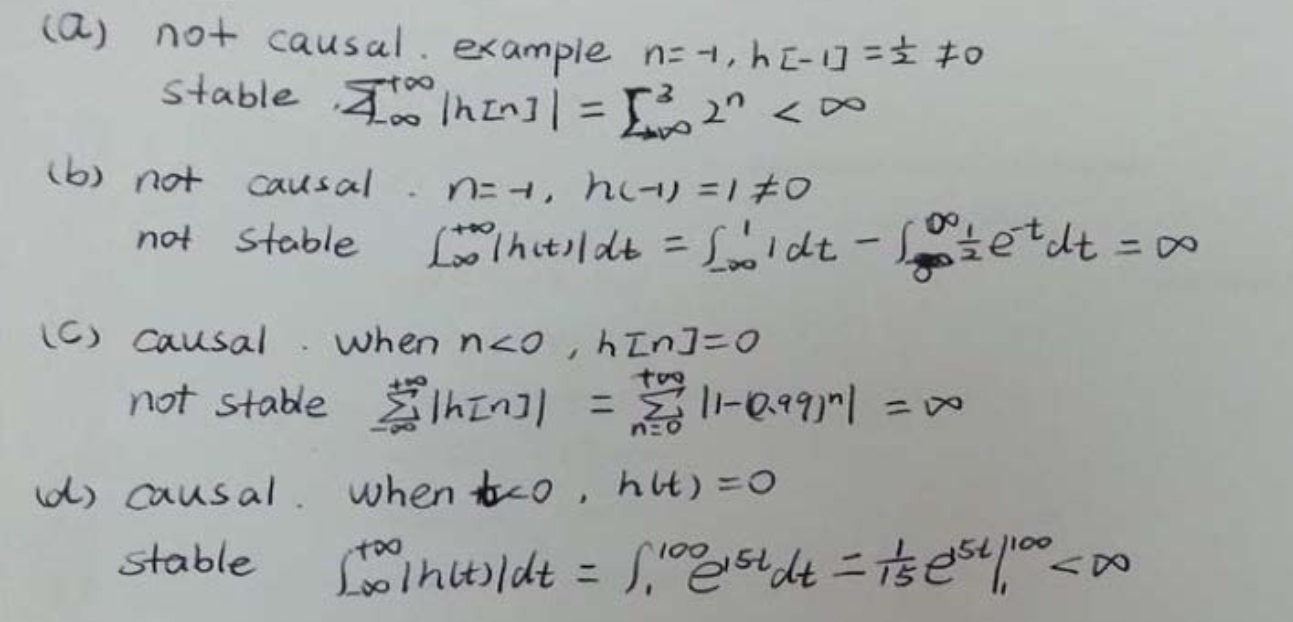 (a) not causal. example n=-1, h[-1]=½ ≠0
stable. ∑_{-∞}^{+∞} |h[n]| = ∑_{-∞}^{3} 2ⁿ < ∞
(b) not causal. n=-1, h(-1)=1≠0
not stable ∫_{-∞}^{+∞} |h(t)|dt = ∫_{-∞}^{1} 1dt - ∫_{0}^{∞} ½e^{-t}dt = ∞
(c) causal. when n<0, h[n]=0
not stable ∑_{-∞}^{+∞} |h[n]| = ∑_{n=0}^{+∞} |1-0.99)ⁿ| = ∞
(d) causal. when t<0, h(t)=0
stable ∫_{-∞}^{+∞} |h(t)|dt = ∫_{1}^{100} e^{15t}dt = 1/15 e^{15t}|_{1}^{100} < ∞